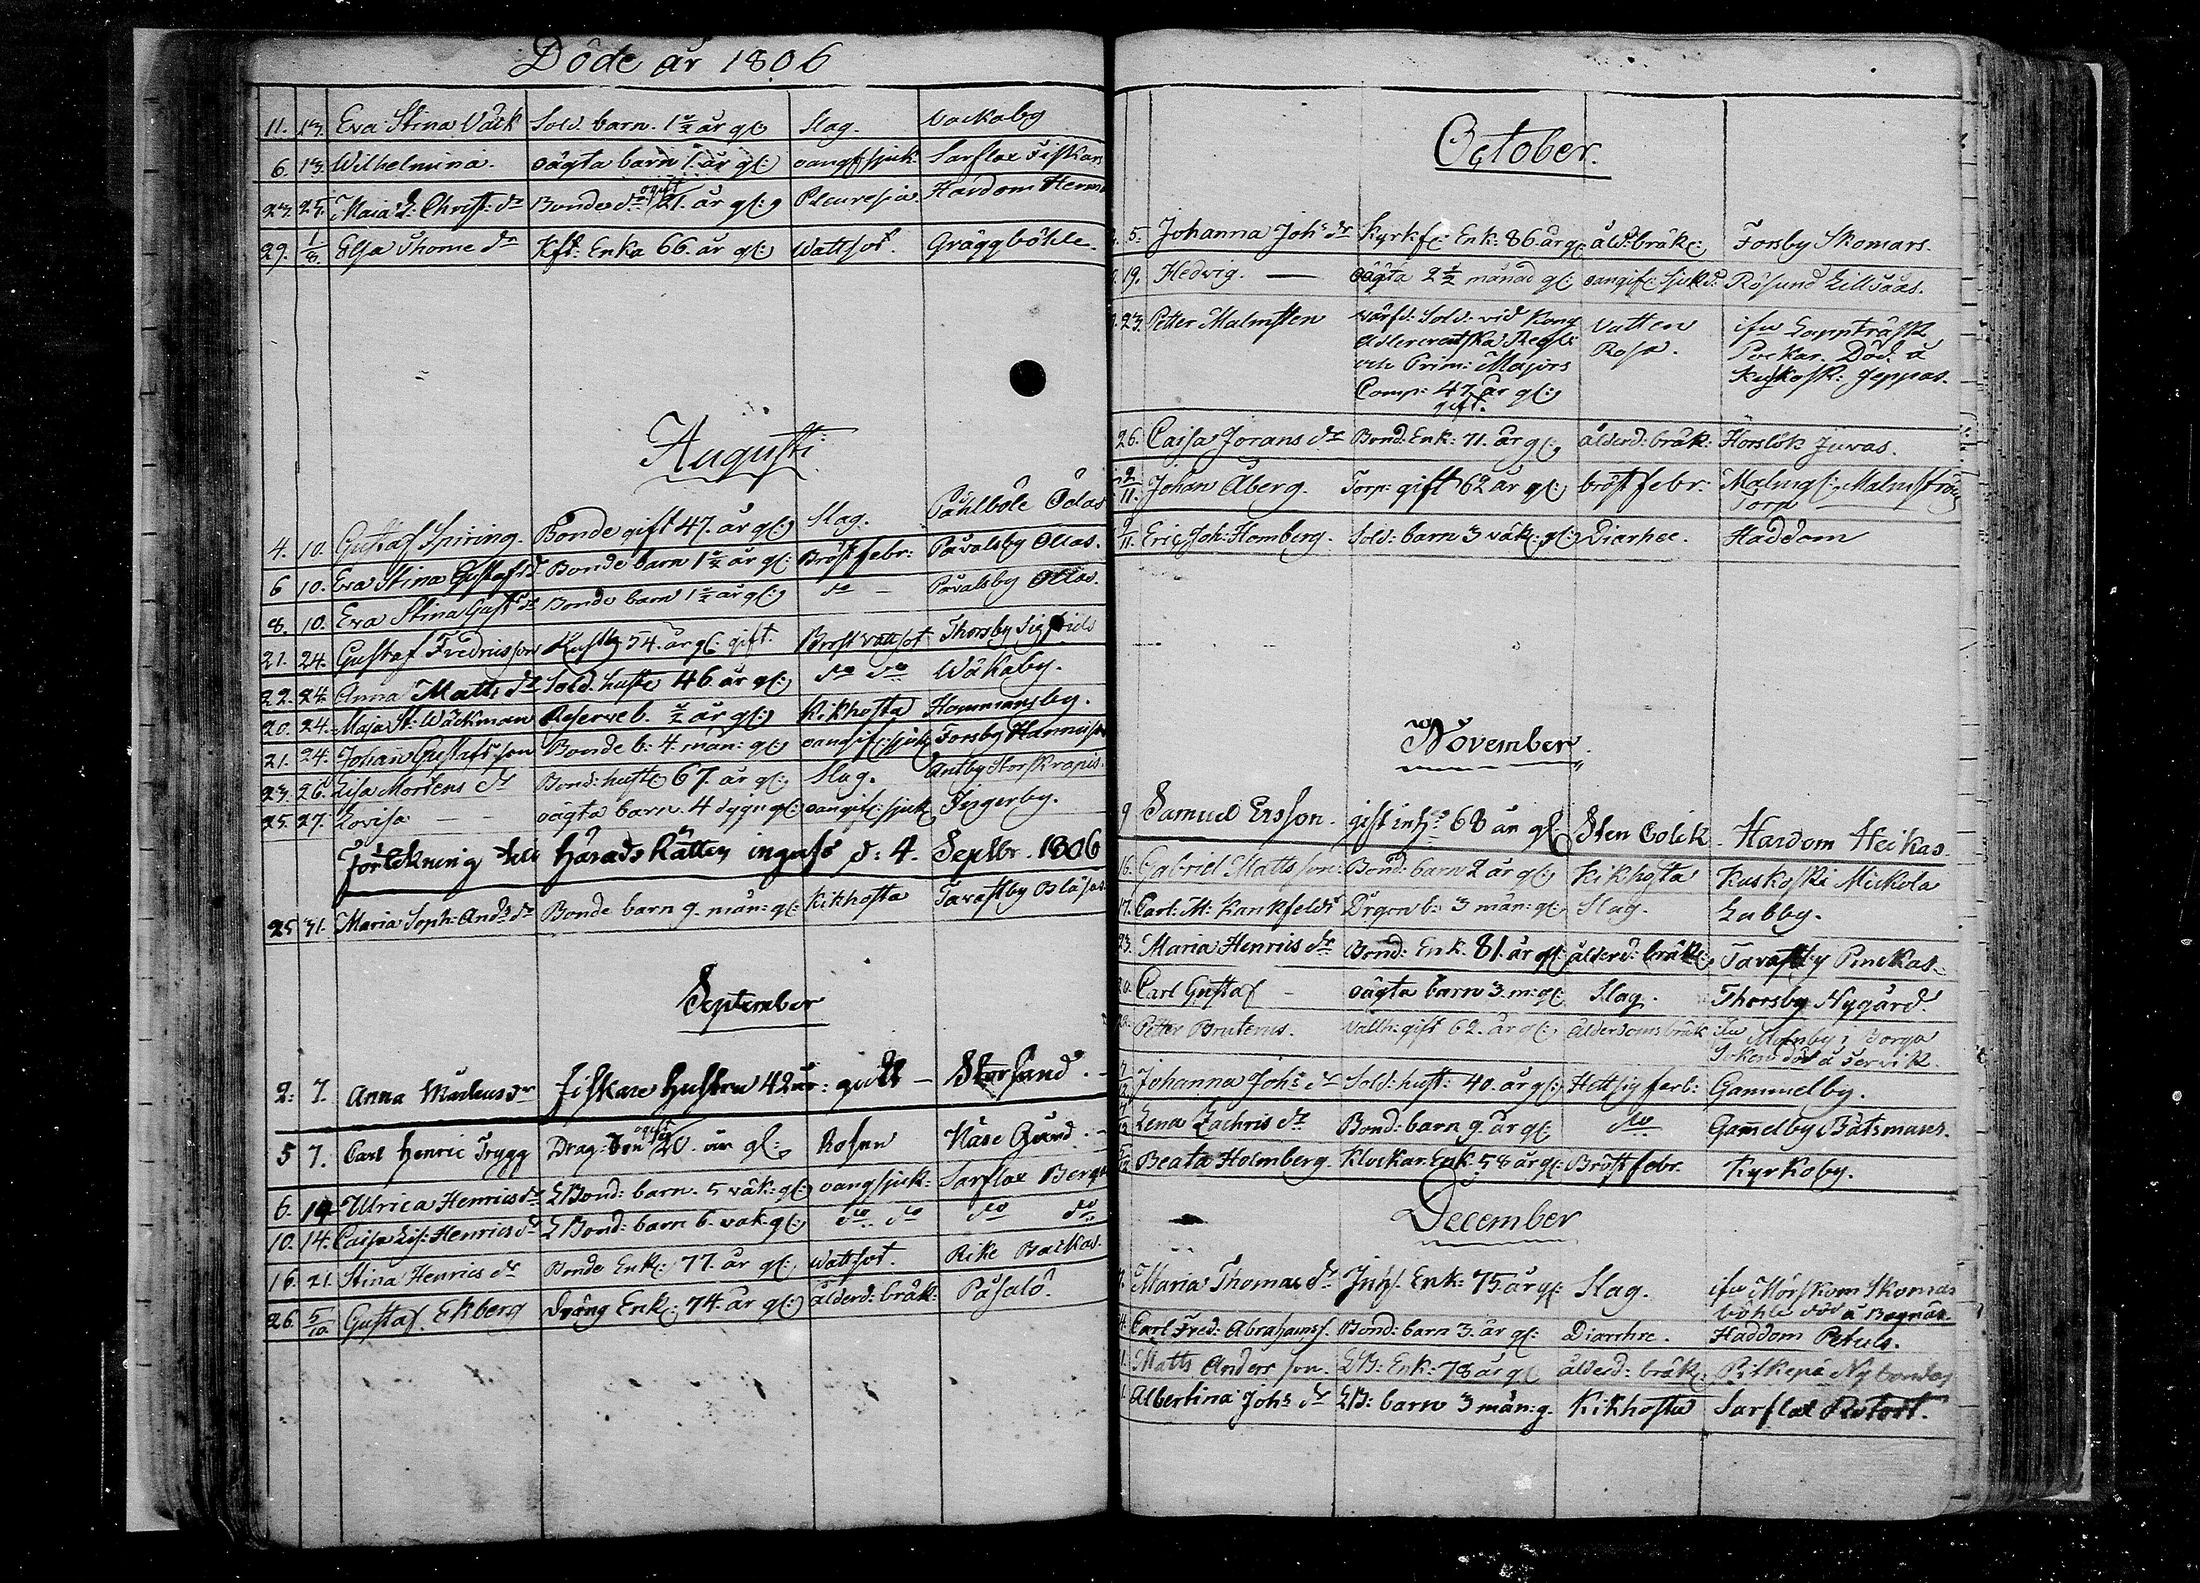 Döde år 1806
11. 13. Eva Stina Väck Sold. barn. 1 1/2 år gl: Slag. Vackaby
6. 13. Wilhelmina. oägta barn 1. år gl: oangf sjuk: Sarflax Fiskars
23. 25. Maja L: Christ: dr Bonde dr ogift 21. år gl: Pleuresia Hardom Herm
29. 1/8. Elsa Thome dr Kft: Enka 66. år gl: Wattsot Gräggböhle.
Augusti
4. 10. Gustaf Spiring. Bonde gift 47. år gl: Slag. Påhlböle Ödas
6 10. Eva Stina Gustafsd. Bonde barn 1 1/2 år gl: Bröst febr: Påvalsby Ollas.
8. 10. Eva Stina Gust: dr Bonde barn 1 1/2 år gl: do — Påvalsby Ollas.
21. 24. Gustaf Fredricsson 74. år gl: gift. Bröst vattsot Thorsby Sigfrids
22. 24. Anna Matts dr Sold. hustr 46 år gl: do do Wäkaby.
20. 24. Maja St: Wäckman Reserve b. 1/2 år gl: Kikhosta Hommansby.
21. 24. Johan Gustafsson Bonde b: 4. mån: gl: oangif: sjuk Forsby Hannus
23. 26. Lisa Mortens dr Bond: hustr 67. år gl: Slag. Antby Storskrapis.
25. 27. Lovisa — — oägta barn. 4 dygn gl: oangif: sjuk Tingerby.
Förtekning till Härads Rätten ingafs d: 4. Septbr. 1806
25 31. Maria Soph: And: dr Bonde barn 9. mån: gl: Kikhosta Tavastby Blåsas
September
2. 7. Anna Mårtensdr fiskare Hustru 42 år: — Sarfsand. —
5 7. Carl Henric Trygg Drag: Son ogift 20. år gl: Rosen Näse Gård. —
6. 14 Ulrica Henricsdr LBond: barn. 5 väk: gl: oang sjuk: Sarflax Bergs
10. 14. Caisa Lis: Henricsdr LBond: barn 6. vak. gl: do do do do
16. 21. Stina Henrics dr Bonde Enk: 77. år gl: Wattsot. Rike Backas.
26. 5/10 Gustaf Ekberg Dräng Enk: 74. år gl: ålderd: bråk: Påsalö.
October.
5. Johanna Joh: dr Kyrkf: Enk: 86. år gl: åld: bråk: Forsby Skomars.
19. Hedvig. — oägta 2 1/2 månad gl: oangif: sjukd: Rösund Lillsåås.
23. Petter Malmsten värfd: Sold: vid Kong Vatten ifu Lappträsk
Adlercreutska Regt: Rosa. Peckar. Död å
och Prim: Majors Kuskosk: Jeppas.
Comp: 47 år gl:
gift.
26. Caisa Jorans dr Bond: Enk: 71. år gl: ålderd: bråk: Horslök Juvas.
2/11. Johan Åberg. Torp: gift 62 år gl: bröst febr: Malmg: Malmström
Torp
9/11. Eric Joh: Homberg. Sold: barn 3 väk: gl: Diarhee. Haddom
November.
9 Samuel Ersson. gift inh: 68 år gl: Sten Colik Hardom Heikas
16. Gabriel Mattsson: Bond: barn 2 år gl: Kikhosta Kuskoski Mickola
17. Carl: M: Kankfeldt Drgon b: 3 mån: gl: Slag. Labby.
23. Maria Henrics dr Bond: Enk. 81. år gl: ålderd: bråk: Tavastby Pinckas.
Carl Gustaf — oägta barn 3. m: gl: Slag. Thorsby Nygård.
Petter Brutenus. Vallh: gift 62. år gl: ålderdomsbråk ifu Molnby, Borgå
Soken död å Tervik.
Johanna Joh: dr Sold: hust: 40. år gl: Hettsig feb: Gammelby.
Lena Zachris dr Bond: barn 9. år gl: do Gamelby Båtsmans.
Beata Holmberg Klockar. Enk: 58 år gl: Bröst febr. Kyrkoby.
December
Maria Thomas dr Inhs. Enk: 75. år gl: Slag. ifu Mörskom Skomar
böhle död å Bagnäs.
Carl Fred: Abrahamss. Bond: barn 3. år gl: Diarrhee. Haddom Petuls.
Matts Andersson. LB: Enk: 78 år gl ålderd: bråk: Pitkepä Nybondas
Albertina Joh: dr LB: barn 3 mån: g. Kikhosta Sarflax Rotort.